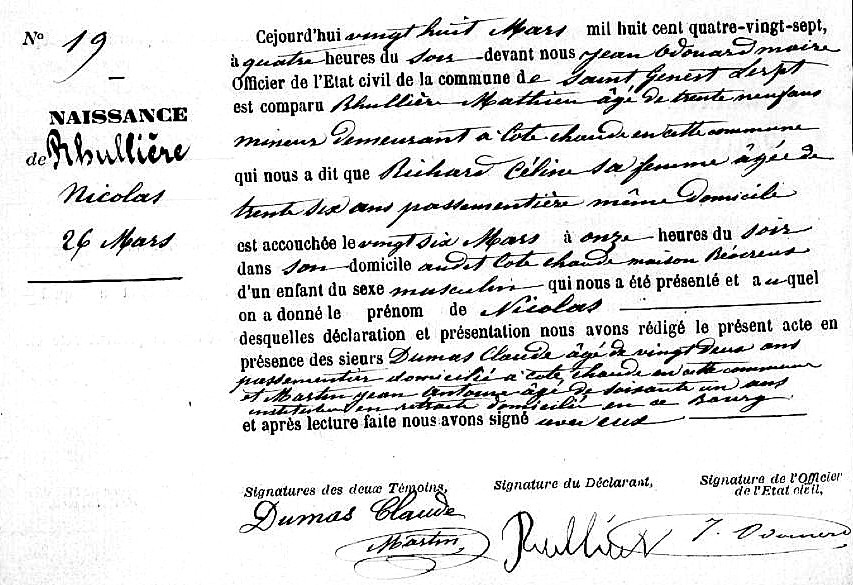 N° 19
NAISSANCE
de Rhullière
Nicolas
26 Mars
Cejourd'hui vingt huit Mars mil huit cent quatre-vingt-sept,
à quatre heures du soir devant nous Jean Edouard Moire
Officier de l'Etat civil de la commune de Saint Genest Lerpt
est comparu Rhullière Mathieu âgé de trente neuf ans
mineur demeurant à Cote chaude en cette commune
qui nous a dit que Richard Céline sa femme âgée de
trente six ans passementière même domicile
est accouchée le vingt six Mars à onze heures du soir
dans son domicile audit Cote chaude maison
d'un enfant du sexe masculin qui nous a été présenté et auquel
on a donné le prénom de Nicolas
desquelles déclaration et présentation nous avons rédigé le présent acte en
présence des sieurs Dumas Claude âgé de vingt deux ans
passementier domicilié à Cote chaude en cette commune
et Martin Jean Antoine âgé de soixante un ans
instituteur en retraite domicilié en ce Bourg
et après lecture faite nous avons signé avec eux
Signatures des deux Témoins,
Signature du Déclarant,
Signature de l'Officier
de l'Etat civil,
Dumas Claude
Martin
Rullière